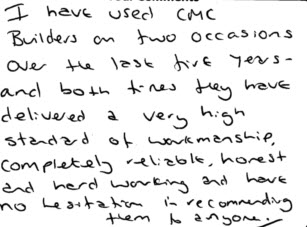 I have used CMC
Builders on two occasions
over the last five years -
and both times they have
delivered a very high
standard of workmanship,
completely reliable, honest
and hard working and have
no hesitation in recommending
them to anyone.